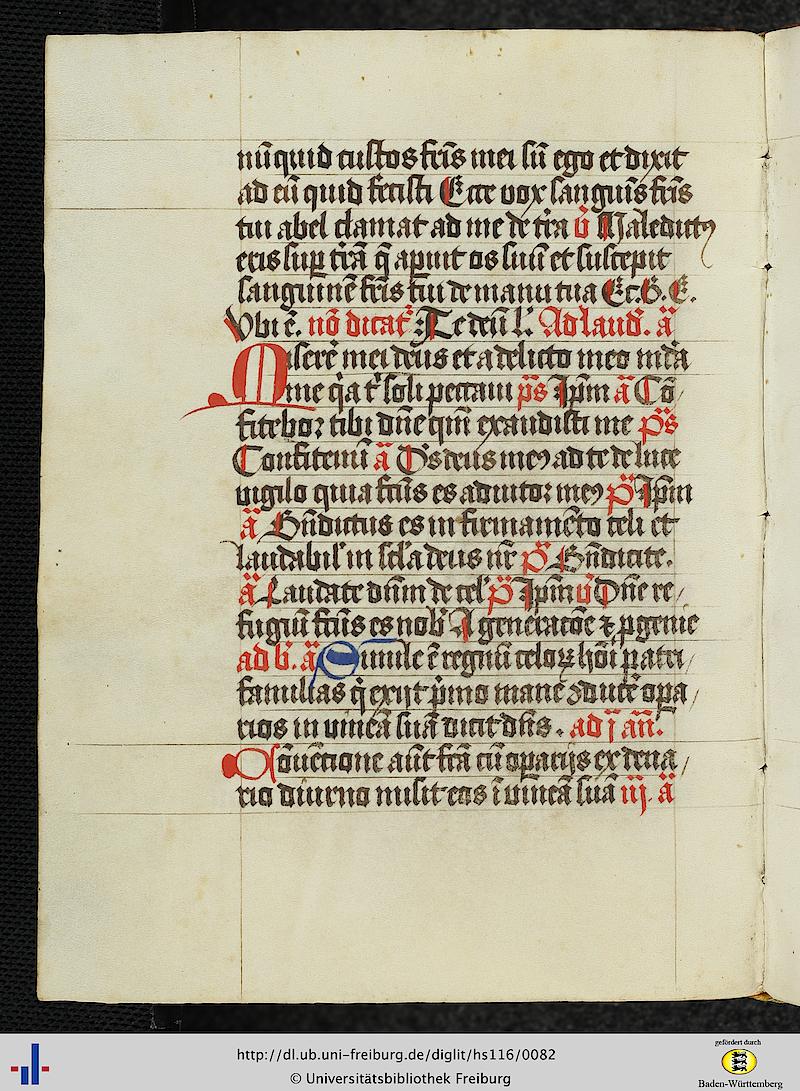 nūquid custos fr̄is mei sū ego et dixit
ad eū quid fecisti Ecce vox sanguīs fr̄is
tui abel clamat ad me de t̄ra v̄ Maledictꝯ
eris sup̱ t̄rā q̄ aperuit os suū et suscepit
sanguinē fr̄is tui de manu tua Ec. G. E.
Vbi ē. nō dicat᷑ Te deū l. Ad laud. ā
Miserē mei deus et a delicto meo mūda
me q̄a t̄ soli peccaui p̄s Ip̄m ā Cō
fitebor tibi dn̄e qm̄ exaudisti me p̄s
Confitemī ā D̄s deus meꝯ ad te de luce
vigilo quia fc̄us es adiutor meꝯ p̄ Ip̄m
ā Bn̄dictus es in firmamēto celi et
laudabil' in sc̄la deus nr̄ p̄ Bn̄dicite.
ā Laudate dn̄m de cel' p̄ Ip̄m v̄ Dn̄e re
fugiū fc̄us es nob' A generac̄oe ⁊ ꝓgenie
ad b. ā Simile ē regnū celoꝝ hōi patri
familias q̇ exijt p̄mo mane ꝯducē oꝑa
rios in vineā suā dicit dn̄s. ad j an̄.
Cōuencione aūt fc̄ā cū oꝑarijs ex dena
rio diurno misit eos ī vineā suā iij. ā
http://dl.ub.uni-freiburg.de/diglit/hs116/0082
© Universitätsbibliothek Freiburg
gefördert durch
Baden-Württemberg